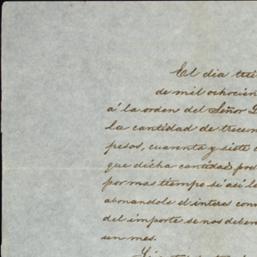 El dia
de mil ochocien
á la orden del Señor
la cantidad de trecen
pesos, cuarenta y siete
que dicha cantidad pod
por mas tiempo si así l
abonandole el interes con
del importe se nos deben
un mes.